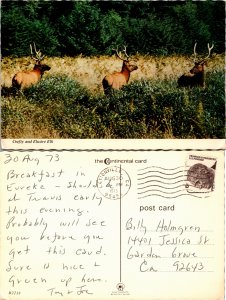 Crafty and Elusive Elk
30 Aug 73
the continental card
Breakfast in
Eureka - Should be
at Travis early
this evening.
Probably will see
you before you
get this card.
Sure is nice &
Green up here.
post card
Billy Holmgren
14401 Jessica St
Garden Grove
Ca 92643